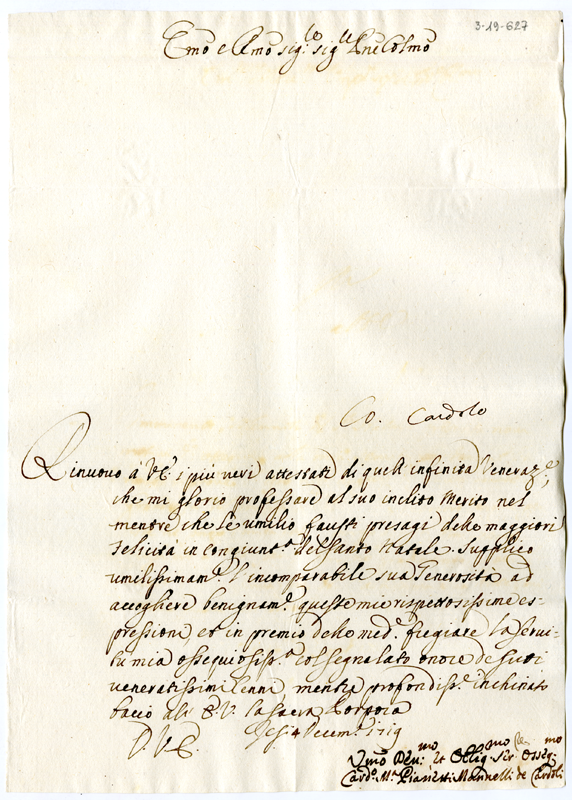 3-19-627
Emo e Rmo Sig.re Sig.re Pne Colmo
Co. Cardolo
Rinuovo à V.E. i più veri attestati di quell infinita Veneraz.e,
che mi glorio professare al suo inclito Merito nel
mentre che le umilio fausti presagi delle maggiori
felicità in congiunt.a del Santo Natale. Supplico
umilissimam.e l'incomparabile sua Generosità ad
accogliere benignam.e queste mie rispettosissime es-
pressioni, et in premio delle med.e fregiare la servi-
tù mia ossequiosiss.a col segnalato onore de suoi
veneratissimi Cenni, mentre profondiss.e inchinato
bacio all' E.V. la sacra Porpora
Jesi 4 Decem.e 1719
D.V.E.
Vmo Deu:mo et Obblig:mo Ser.re Osseq:mo
Card.o M.a Pianetti Mannelli de Cardoli